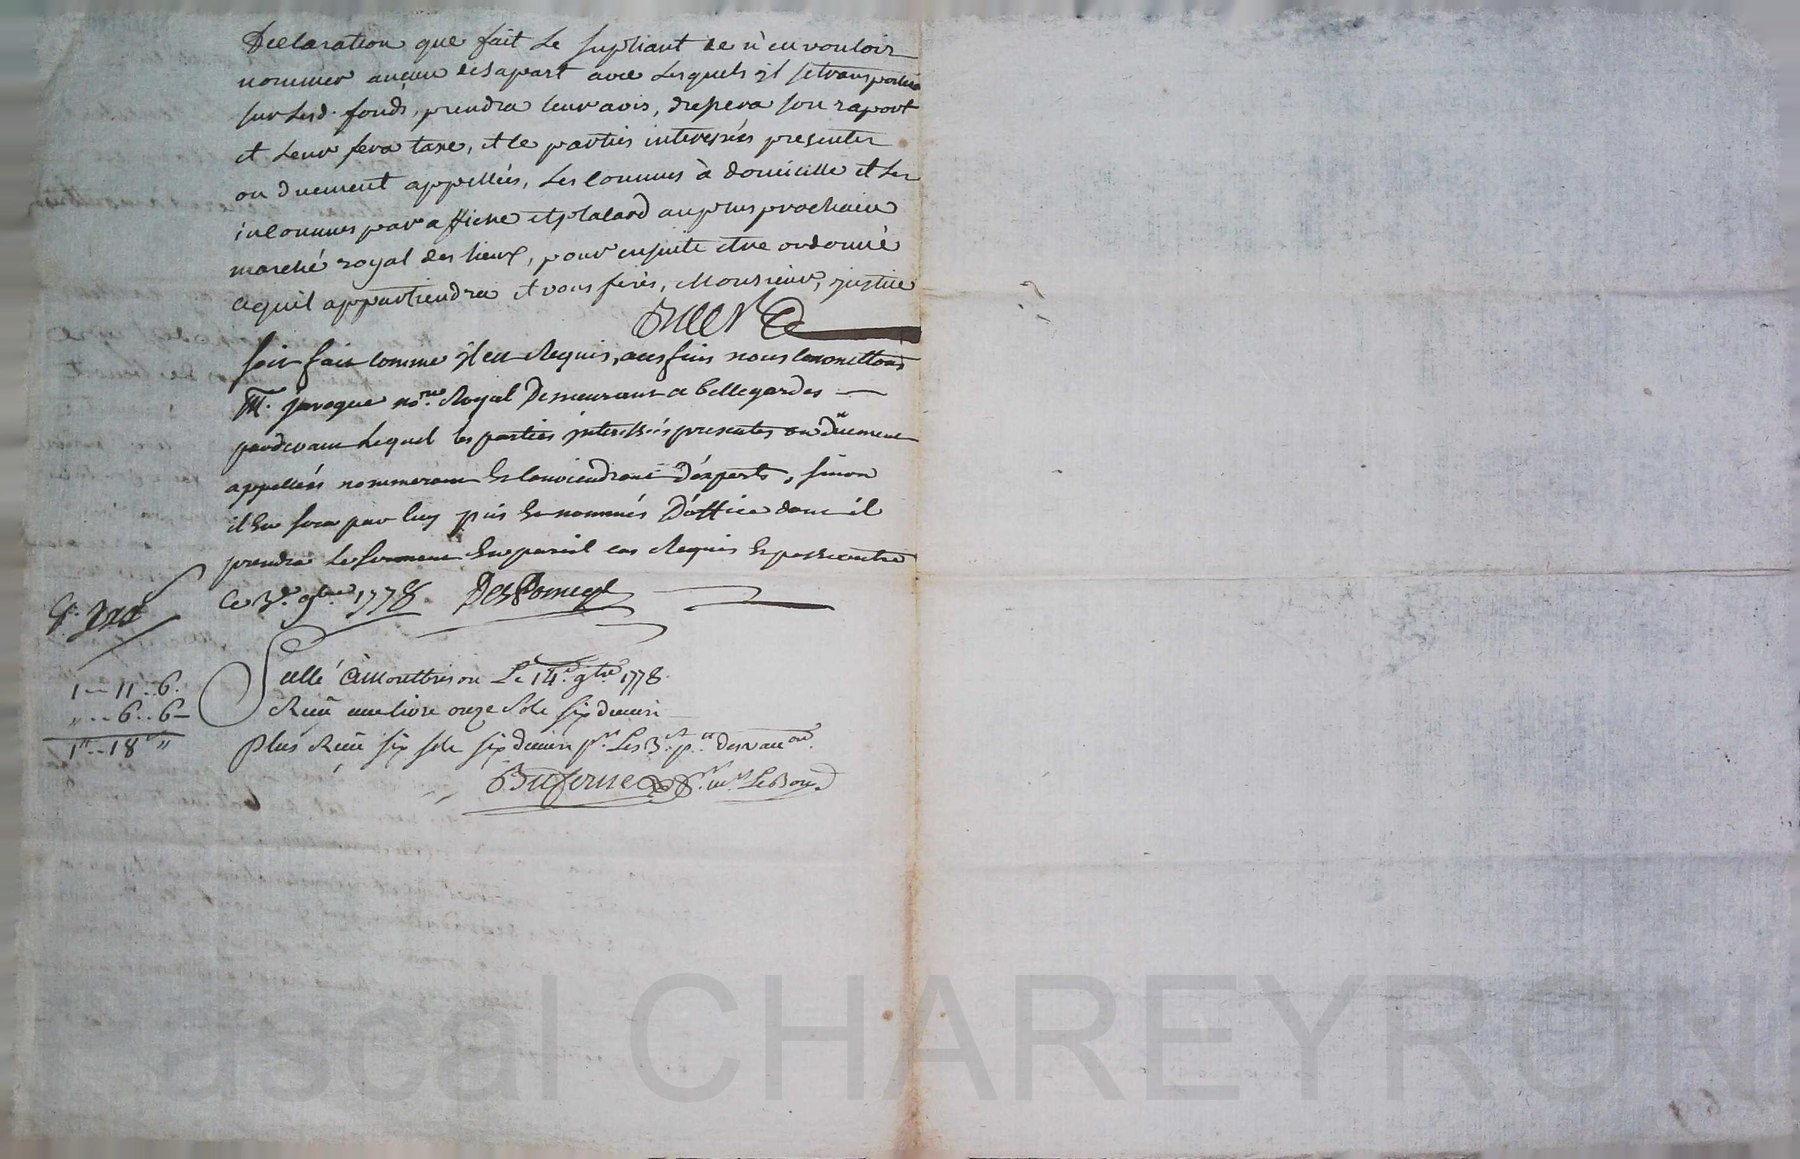 Declaration que fait Le supliant de n'en vouloir
nommer aucun desapart avec Lesquels jl setransportera
sur Lesd. fonds, prendra leur avis, dressera son raport
et Leur fera taxe, et le parties interessées presentes
ou duement appellées, Les connues à domicille et Les
inconnues par affiche et placard au plus prochain
marché royal des lieux, pour ensuite etre ordonné
ce qu'il appartiendra et vous ferés, Monsieur, justice
soit fait comme jl est Requis, aux fins nous Commettons
M. javogue no.re Royal Demeurant a bellegardes
pardevant Lequel les parties jnteressées presentes ou Duement
appellées nommeront & Conviendront d'experts, sinon
il En sera par luy pris & nommés D'office dont il
prendra Le serment En pareil cas Requis & passé outre
Ce 3.e 9bre 1778.
1 -- 11 .. 6.
" -- 6 .. 6 -
1" -- 18 " "
Scellé à Montbrison Le 14.e 9bre 1778.
Reçu une livre onze Sols six deniers
Plus Reçu six sols six deniers pr. Les 3
pascal CHAREYRON